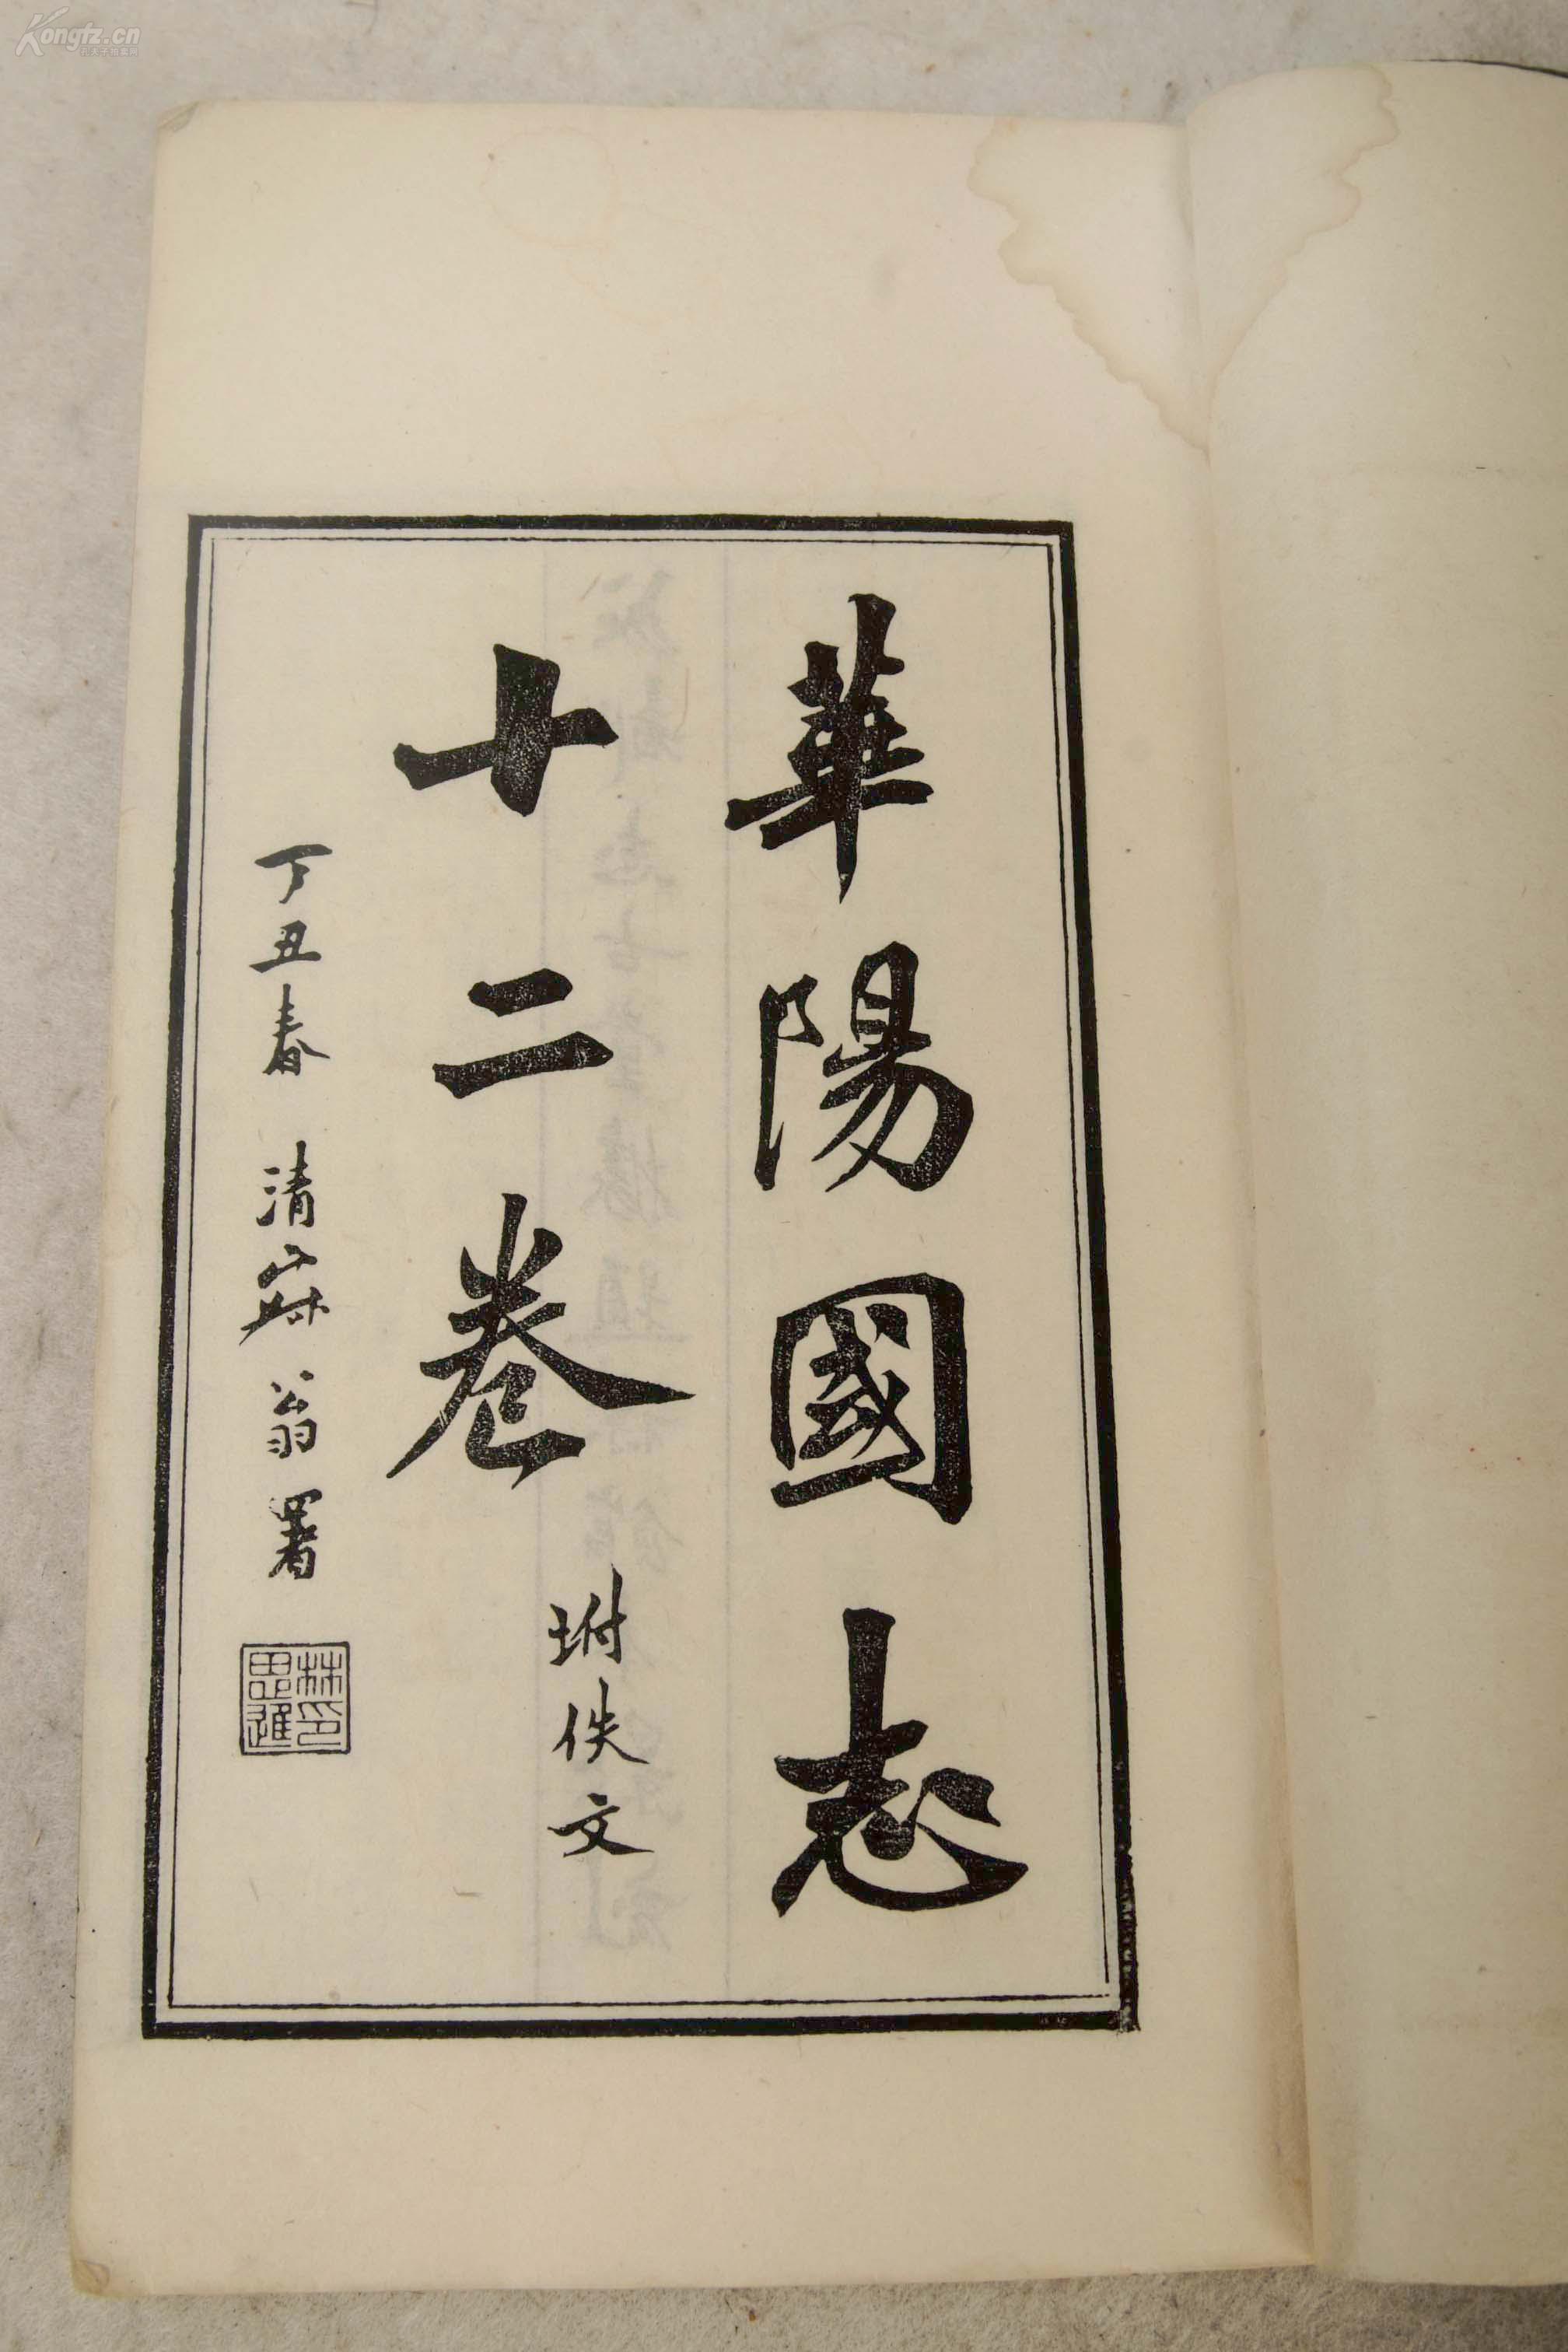 華陽國志
十二卷
坿佚文
丁丑春 清寂翁署
林印思進
Kongfz.cn